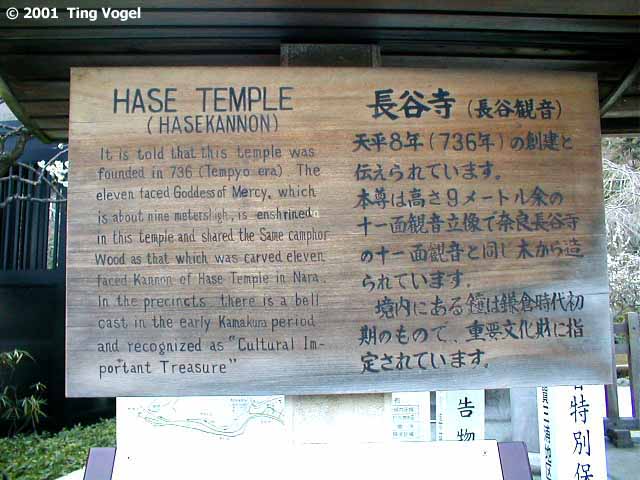 © 2001 Ting Vogel
HASE TEMPLE
(HASEKANNON)
It is told that this temple was
founded in 736 (Tempyo era) The
eleven faced Goddess of Mercy, which
is about nine metershigh, is enshrined
in this temple and shared the Same camphor
Wood as that which was carved eleven
faced Kannon of Hase Temple in Nara.
In the precincts there is a bell
cast in the early Kamakura period
and recognized as "Cultural Im-
portant Treasure"
長谷寺(長谷観音)
天平8年(736年)の創建と
伝えられています。
本尊は高さ9メートル余の
十一面観音立像で奈良長谷寺
の十一面観音と同じ木から造
られています。
境内にある鐘は鎌倉時代初
期のもので、重要文化財に指
定されています。
告物
特別保